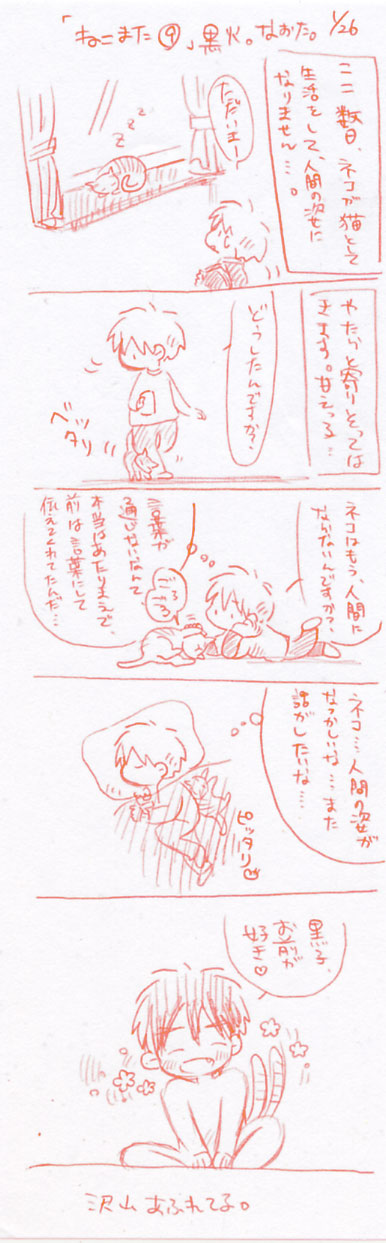 「ねこまた⑨」黒火。なおた。 1/26
ここ数日、ネコが猫として
生活をして、人間の姿に
なりません…。
ただいまー
zzz
やたらと寄りそっては
きます。甘えつる…
どうしたんですか？
ベッタリ
ネコはもう、人間に
ならないんですか？
ごろごろ
言葉が
通じないなんて
本当はあたりまえで、
前は言葉にして
伝えてくれてたんだ…
ネコ…人間の姿が
なつかしいな…また
話がしたいな…
ピッタリ♡
黒子、
お前が
好き♡
沢山あふれてる。